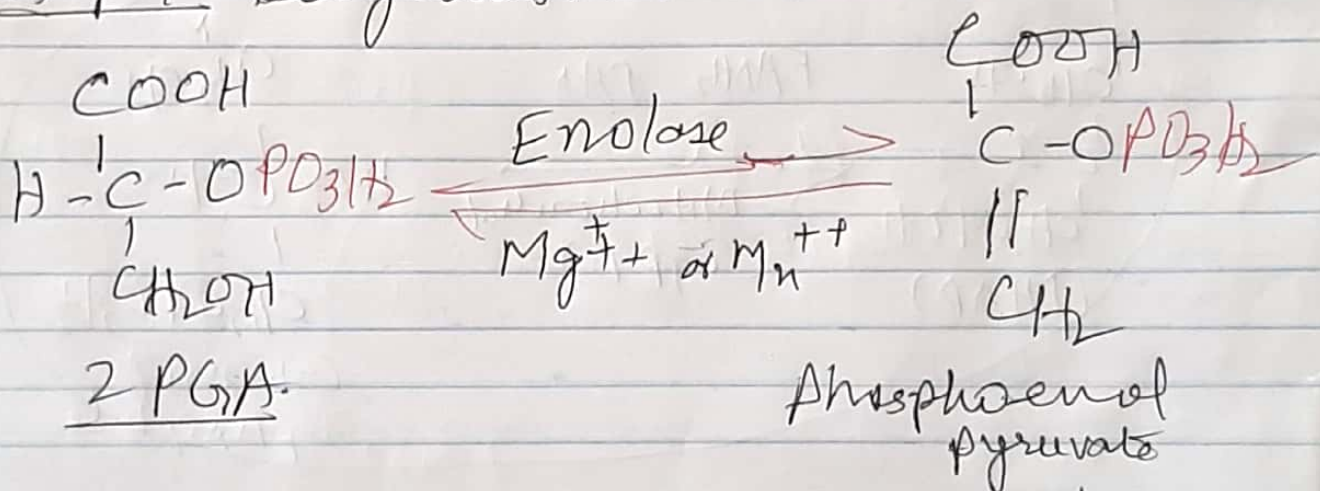 COOH
H-C-OPO3H2
CH2OH
2 PGA.
Enolase
Mg++ or Mn++
COOH
C-OPO3H2
||
CH2
Phosphoenol
pyruvate